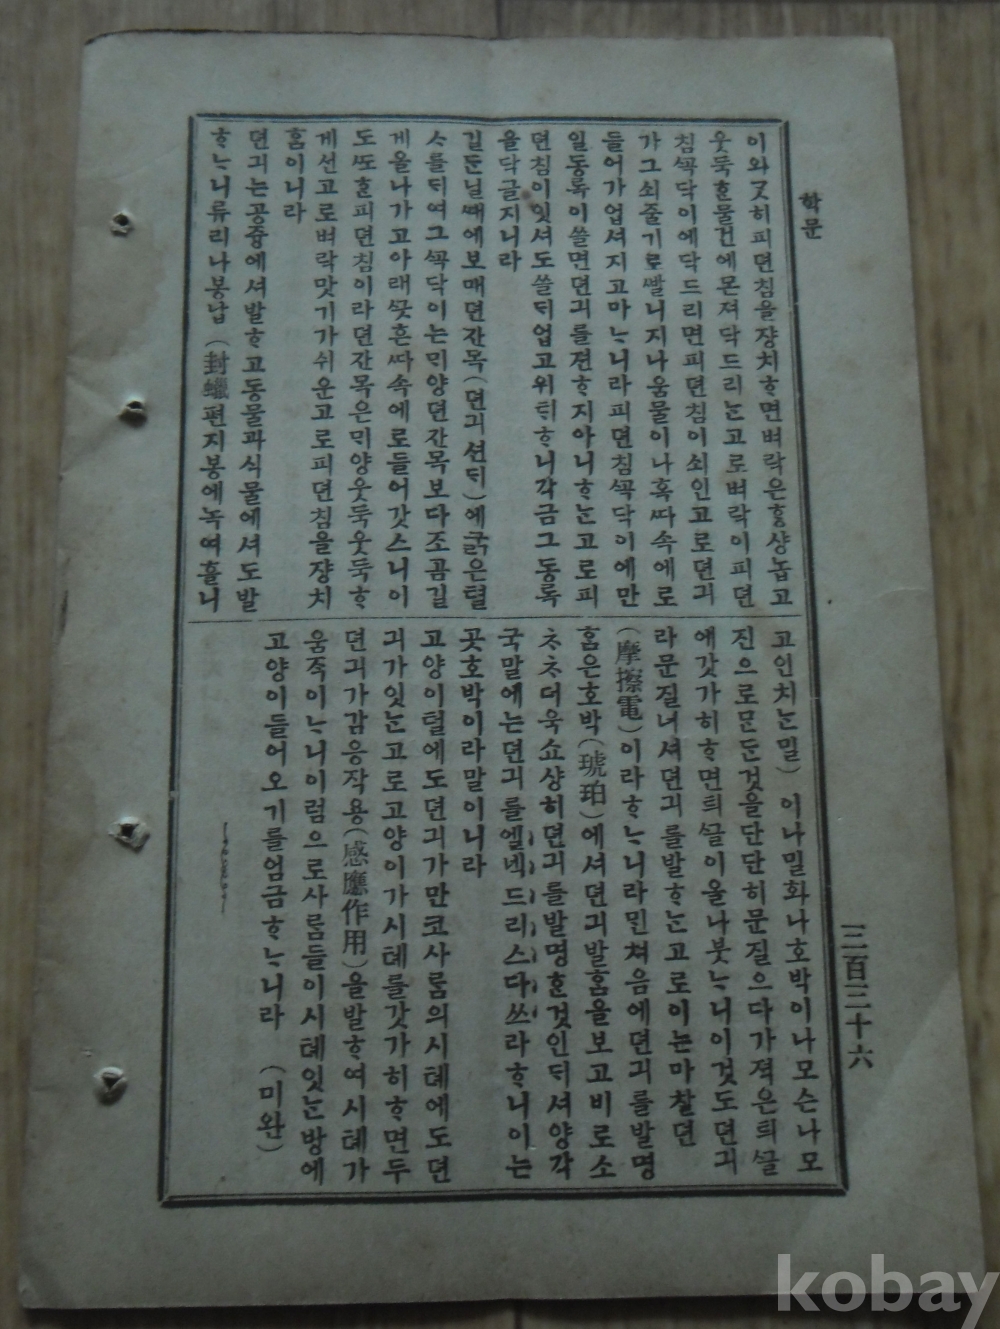 학문
三百三十六
이와 ᄀᆞᆺ히 피뎐침을 쟝치ᄒᆞ면 벼락은 ᄒᆞᆼ샹 놉고
웃둑ᄒᆞᆫ 물건에 몬져 닥드리ᄂᆞᆫ고로 벼락이 피뎐
침 ᄭᅩᆨ닥이에 닥드리면 피뎐침이 쇠인고로 뎐긔
가 그 쇠줄기로 ᄲᅡᆯ니지나 움물이나 혹 ᄯᅡ속에로
들어가 업셔지고 마ᄂᆞ니라 피뎐침 ᄭᅩᆨ닥이에 만
일 동록이 쓸면 뎐긔를 젼ᄒᆞ지 아니ᄒᆞᄂᆞᆫ고로 피
뎐침이 잇셔도 쓸ᄃᆡ업고 위ᄐᆡᄒᆞ니 각금 그 동록
을 닥글지니라
길 ᄃᆞᆫ닐 ᄯᅢ에 보매 뎐간목 (뎐긔션ᄃᆡ) 에 굵은 텰
ᄉᆞ를 ᄃᆡ여 그 ᄭᅩᆨ닥이는 ᄆᆡ양 뎐간목보다 조곰 길
게 올나가고 아래 ᄭᅳᆺ흔 ᄯᅡ속에로 들어갓스니 이
도 ᄯᅩᄒᆞᆫ 피뎐침이라 뎐간목은 ᄆᆡ양 웃둑웃둑ᄒᆞ
게 션고로 벼락맛기가 쉬운고로 피뎐침을 쟝치
홈이니라
뎐긔는 공중에셔 발ᄒᆞ고 동물과 식물에셔도 발
ᄒᆞᄂᆞ니 류리나 봉납 (封蠟 편지봉에 녹여 흘니
고 인치ᄂᆞᆫ 밀) 이나 밀화나 호박이나 모슨 나모
진으로 ᄆᆞᆫᄃᆞᆫ것을 단단히 문질으다가 젹은 틔ᄭᅳᆯ
에 갓가히ᄒᆞ면 틔ᄭᅳᆯ이 올나붓ᄂᆞ니 이것도 뎐긔
라 문질너셔 뎐긔를 발ᄒᆞᄂᆞᆫ고로 이는 마찰뎐
(摩擦電) 이라 ᄒᆞᄂᆞ니라 ᄆᆡᆫ쳐음에 뎐긔를 발명
홈은 호박 (琥珀) 에셔 뎐긔 발홈을 보고 비로소
ᄎᆞᄎᆞ 더욱 쇼샹히 뎐긔를 발명ᄒᆞᆫ것인ᄃᆡ 셔양각
국말에는 뎐긔를 엘넥드리스다 쓰라 ᄒᆞ니 이는
곳 호박이라 말이니라
고양이 털에도 뎐긔가 만코 사ᄅᆞᆷ의 시톄에도 뎐
긔가 잇ᄂᆞᆫ고로 고양이가 시톄를 갓가히ᄒᆞ면 두
뎐긔가 감응작용 (感應作用) 을 발ᄒᆞ여 시톄가
움ᄌᆨ이ᄂᆞ니 이럼으로 사ᄅᆞᆷ들이 시톄잇ᄂᆞᆫ 방에
고양이 들어오기를 엄금ᄒᆞᄂᆞ니라 (미완)
kobay